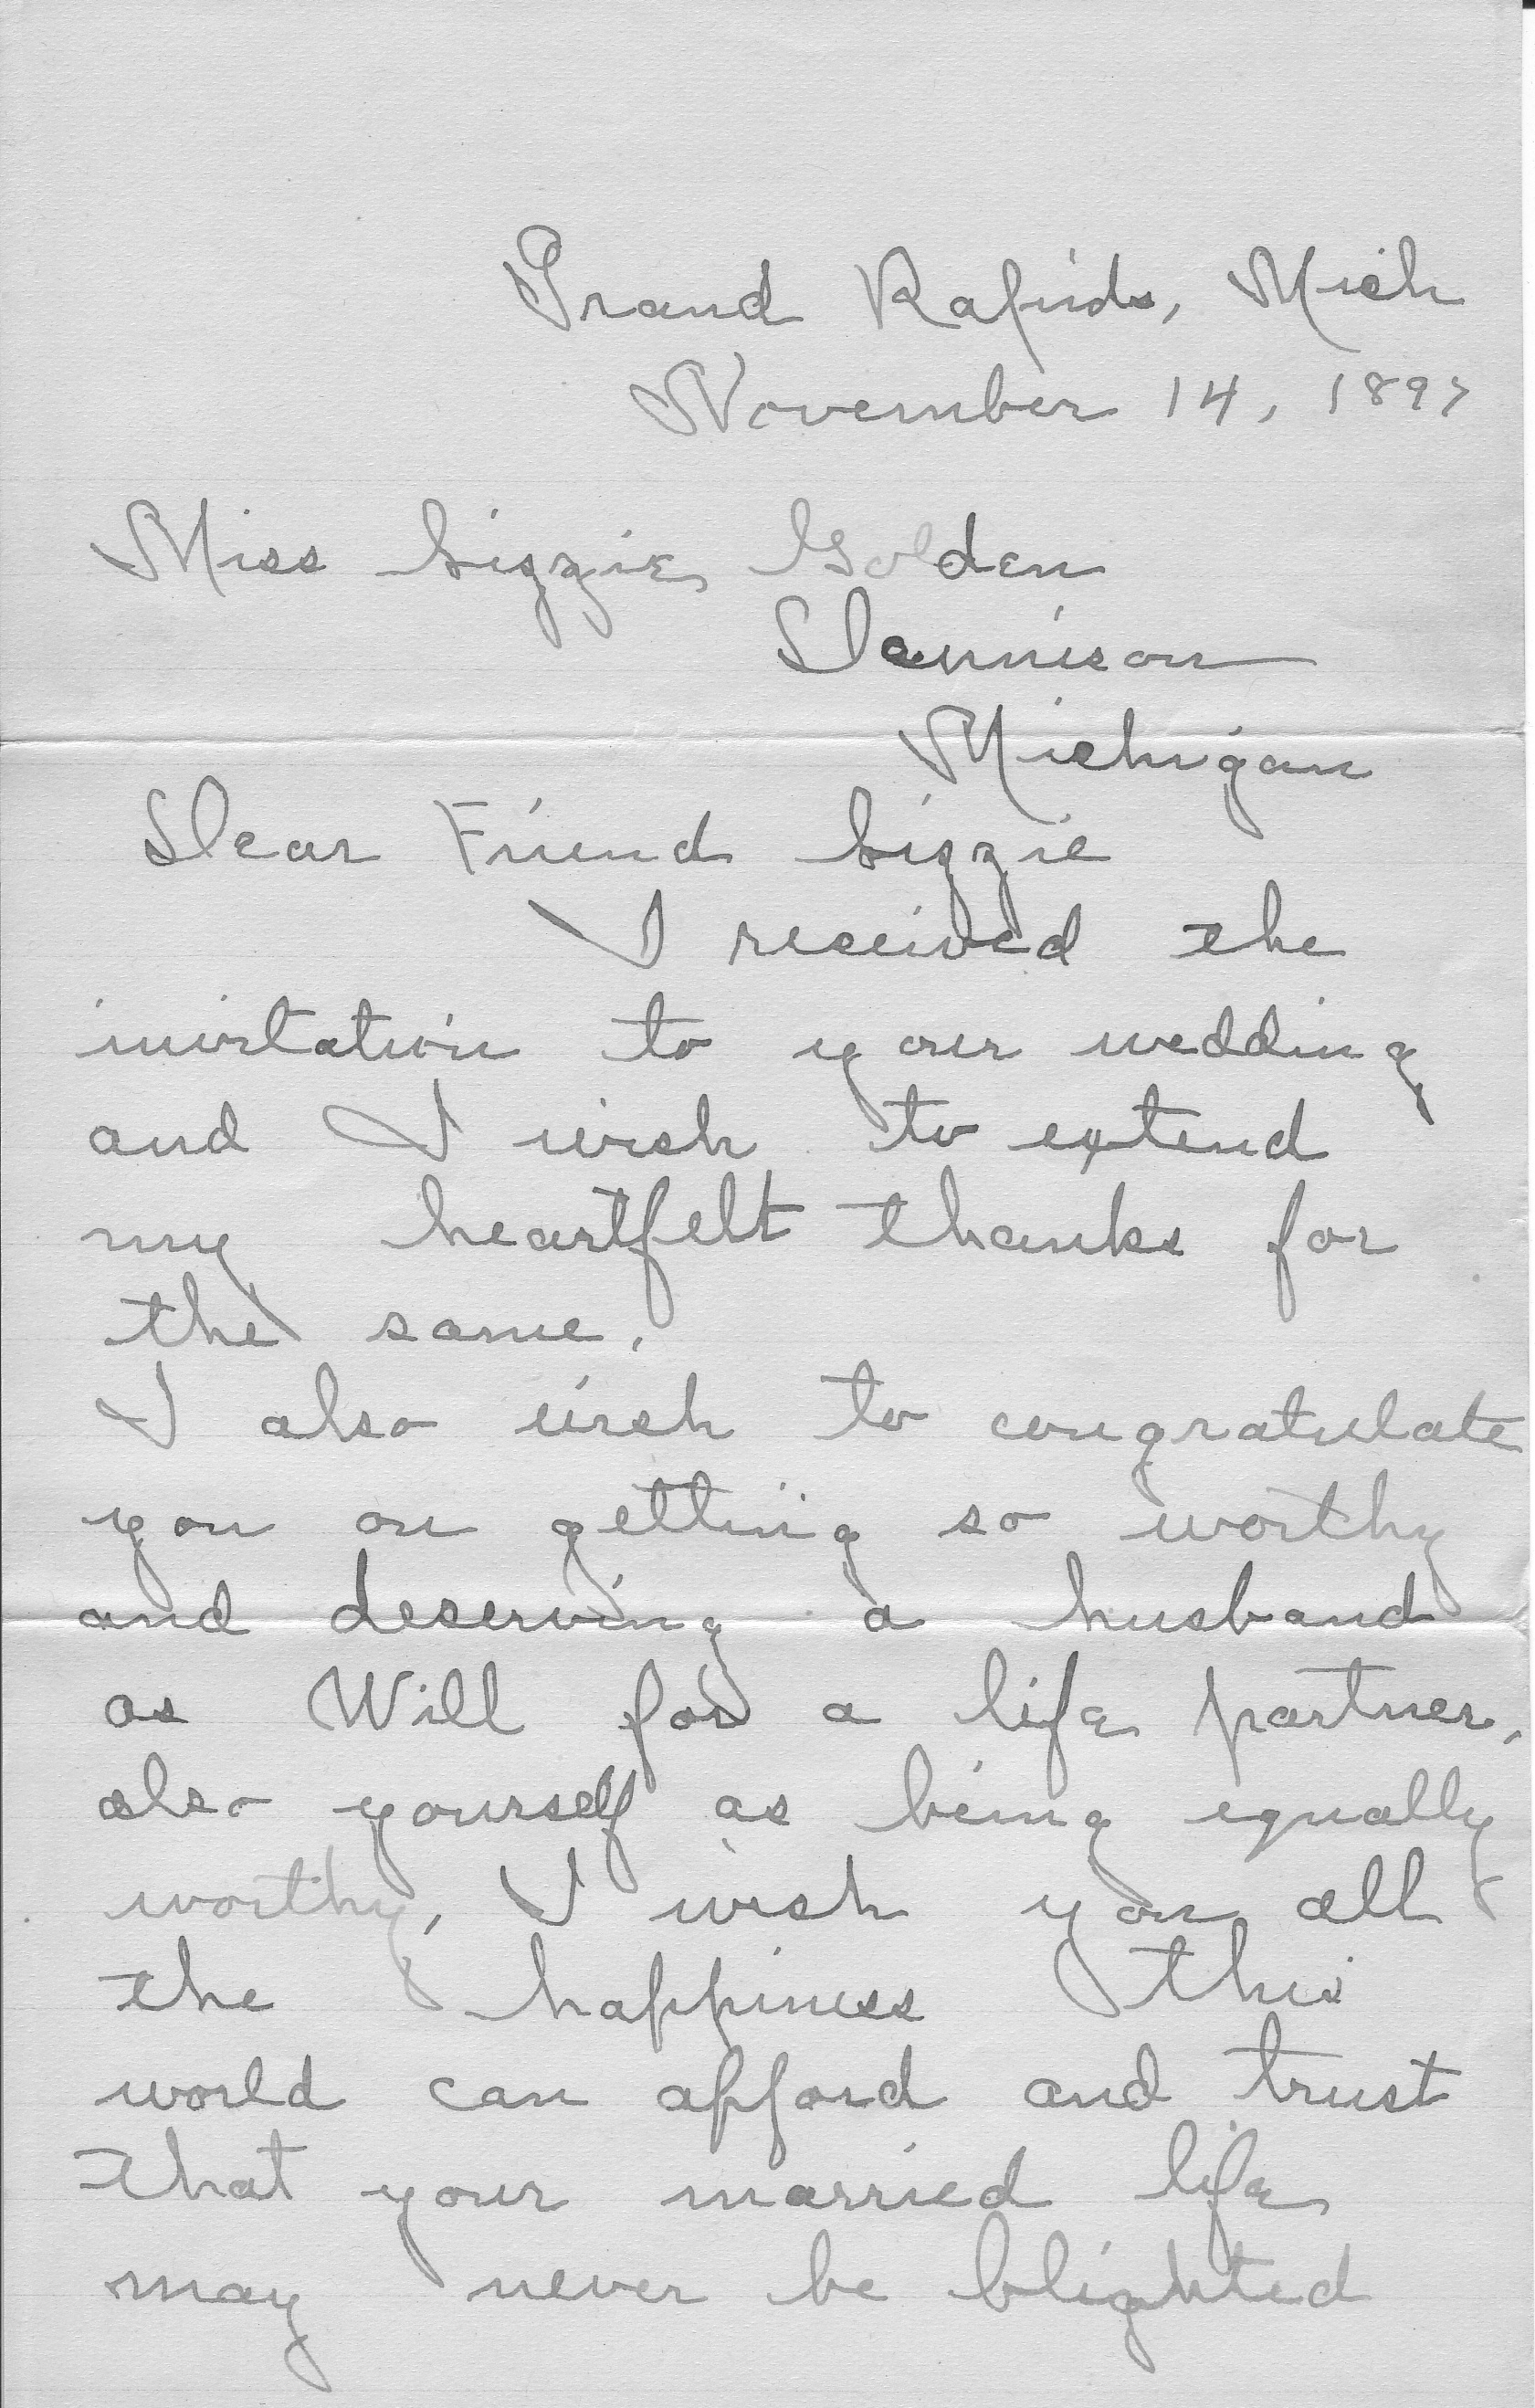 Grand Rapids, Mich
November 14, 1897
Miss Lizzie Golden
Dennison
Michigan
Dear Friend Lizzie
I received the
invitation to your wedding
and I wish to extend
my heartfelt thanks for
the same.
I also wish to congratulate
you on getting so worthy
and deserving a husband
as Will for a life partner,
also yourself as being equally
worthy, I wish you all
the happiness this
world can afford and trust
that your married life
may never be blighted